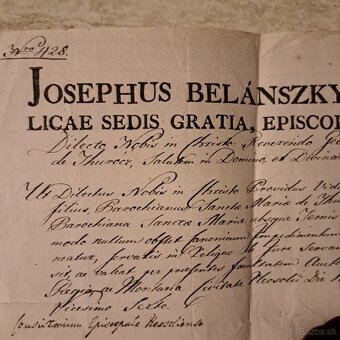 Nro 428.
JOSEPHUS BELÁNSZKY
LICAE SEDIS GRATIA, EPISCOP
Dilecto Nobis in Christo Reverendo Geo
de Thurocz, Salutem in Domino, et Divina
Ut Dilectus Nobis in Christo Providus Vid
filius, Parochianus Sanctæ Mariæ de Th
Parochiana Sanctæ Mariæ absque Ternis
modo nullum obstet canonicum impedimentum
neatur, servatis in Reliquo de Jure Servan
sit, ac valeat per præsentes facultatem
Regia ac Montana Civitate Neosolii Die
Vicesimo Sexto.
Consistorium Episcopale Neosoliense
bazos.sk